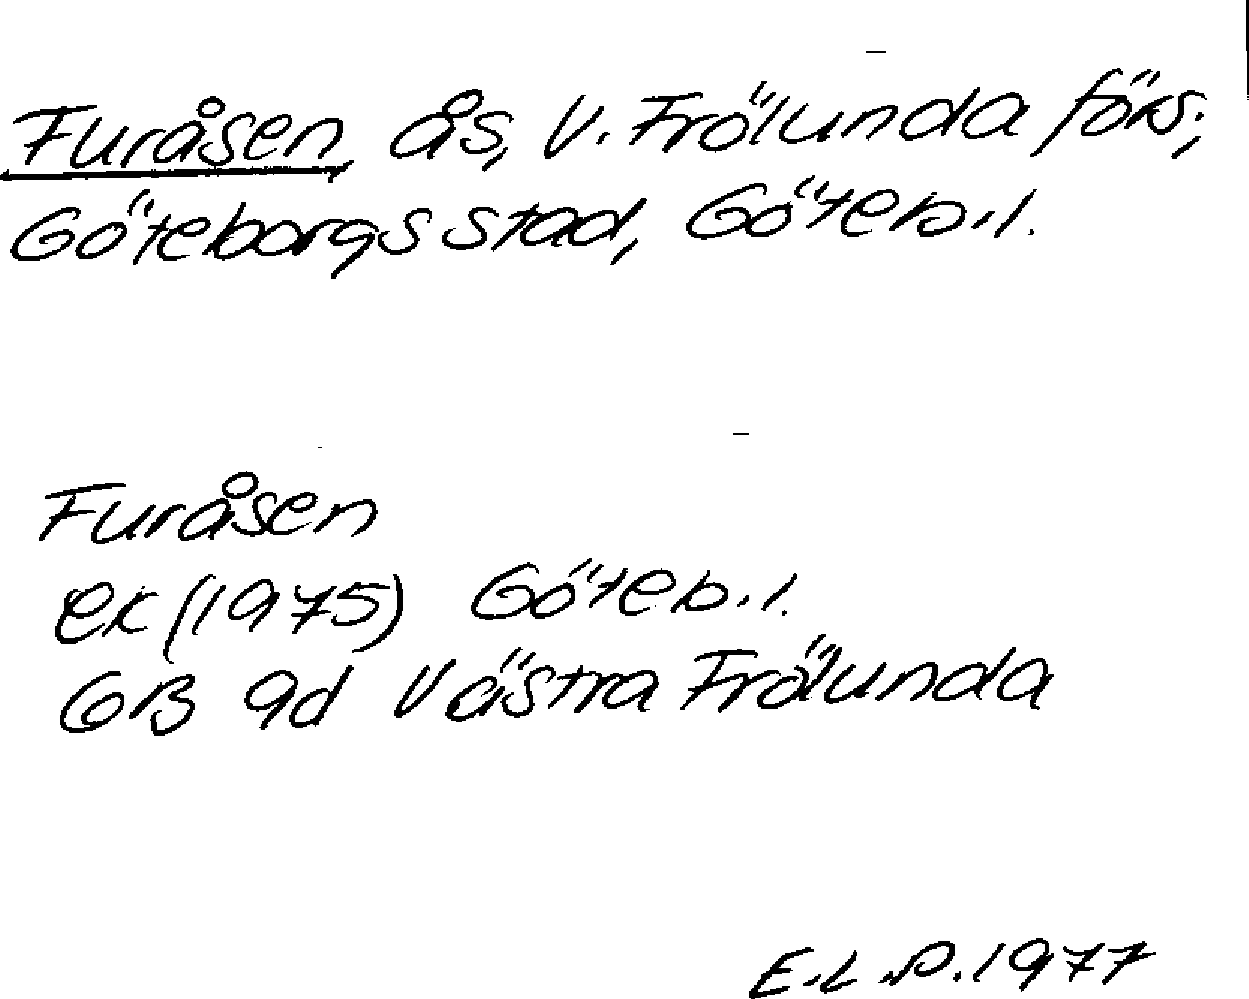 Furåsen, ås, V. Frölunda förs;
Göteborgs stad, Göteb. l.
Furåsen
ek (1975) Göteb. l.
GB 9d Västra Frölunda
E.L.P. 1977